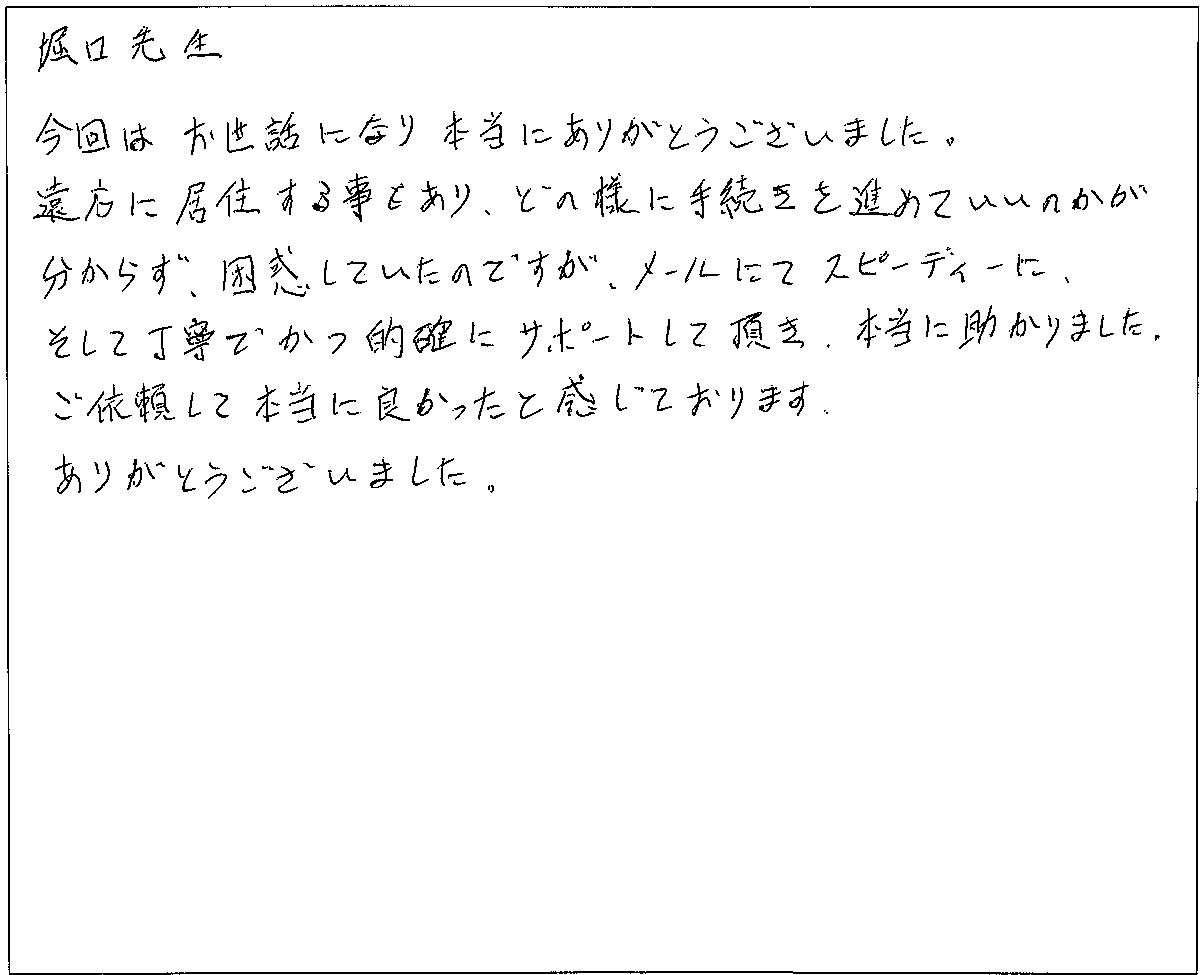 堀口先生
今回は お世話になり 本当にありがとうございました。
遠方に居住する事もあり、どの様に手続きを進めていいのかが
分からず、困惑していたのですが、メールにて スピーディーに、
そして丁寧でかつ的確に サポートして頂き、本当に助かりました。
ご依頼して本当に良かったと感じております。
ありがとうございました。